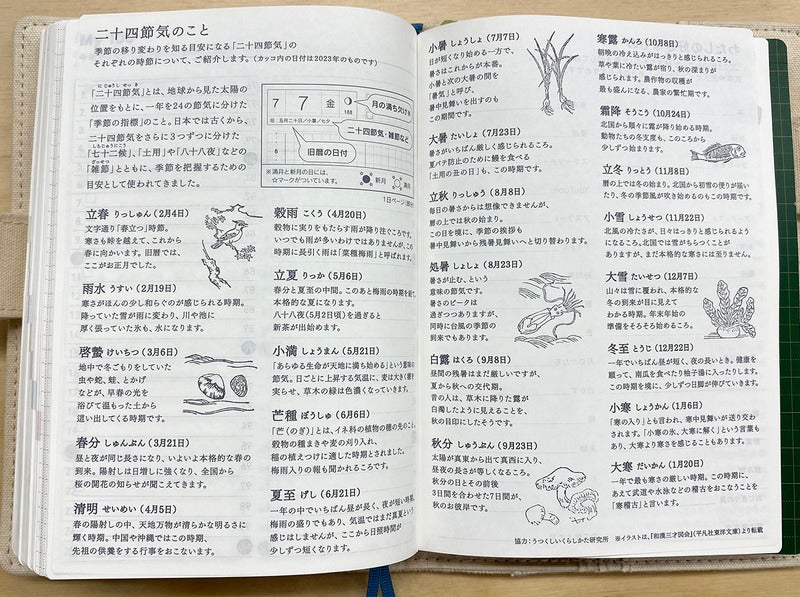 二十四節気のこと
季節の移り変わりを知る目安になる「二十四節気」の
それぞれの時節について、ご紹介します。（カッコ内の日付は2023年のものです）
にじゅうし せっ き
「二十四節気」とは、地球から見た太陽の
位置をもとに、一年を24の節気に分けた
「季節の指標」のこと。日本では古くから、
二十四節気をさらに3つずつに分けた
しちじゅうにこう
「七十二候」、「土用」や「八十八夜」などの
ざっせつ
「雑節」とともに、季節を把握するための
目安として使われてきました。
7 7 金
188
旧：五月二十日／小暑／七夕
月の満ち欠け
二十四節気・雑節など
旧暦の日付
6
※満月と新月の日には、
☆マークがついています。
新月
満月
1日ページ
立春 りっしゅん（2月4日）
文字通り「春立つ」時節。
寒さも峠を越えて、これから
春に向かいます。旧暦では、
ここがお正月でした。
雨水 うすい（2月19日）
寒さがほんの少し和らぐのが感じられる時期。
降っていた雪が雨に変わり、川や池に
厚く張っていた氷も、水になります。
啓蟄 けいちつ（3月6日）
地中で冬ごもりをしていた
虫や蛇、蛙、とかげ
などが、早春の光を
浴びて温もった土から
這い出してくる時期です。
春分 しゅんぶん（3月21日）
昼と夜が同じ長さになり、いよいよ本格的な春の
到来。陽射しは日増しに強くなり、全国から
桜の開花の知らせが聞こえてきます。
清明 せいめい（4月5日）
春の陽射しの中、天地万物が清らかな明るさに
輝く時期。中国や沖縄ではこの時期、
先祖の供養をする行事をおこないます。
穀雨 こくう（4月20日）
穀物に実りをもたらす雨が降り注ぐころです。
いつでも雨が多いわけではありませんが、この
時期に長引く雨は「菜種梅雨」と呼ばれます。
立夏 りっか（5月6日）
春分と夏至の中間。このあと梅雨の時期を経て、
本格的な夏になります。
八十八夜（5月2日）を過ぎると
新茶が出始めます。
小満 しょうまん（5月21日）
「あらゆる生命が天地に満ち始める」という意味の
節気。日ごとに上昇する気温に、麦は大きく穂を
実らせ、草木の緑は色濃くなっていきます。
芒種 ぼうしゅ（6月6日）
「芒（のぎ）」とは、イネ科の植物の穂の先のこと。
穀物の種まきや麦の刈り入れ、
稲の植えつけに適した時期とされました。
梅雨入りの報も聞かれるころです。
夏至 げし（6月21日）
一年の中でいちばん昼が長く、夜が短い時期。
梅雨の盛りでもあり、気温ではまだ真夏という
感じはしませんが、ここから日照時間が
少しずつ短くなります。
小暑 しょうしょ（7月7日）
日が短くなり始める一方で、
暑さはこれからが本番。
小暑と次の大暑の間を
「暑気」と呼び、
暑中見舞いを出すのも
この期間です。
大暑 たいしょ（7月23日）
暑さがいちばん厳しく感じられるころ。
夏バテ防止のために鰻を食べる
「土用の丑の日」も、この時期です。
立秋 りっしゅう（8月8日）
毎日の暑さからは想像できませんが、
暦の上では秋の始まり。
この日を境に、季節の挨拶も
暑中見舞いから残暑見舞いへと切り替わります。
処暑 しょしょ（8月23日）
暑さが止む、という
意味の節気です。
暑さのピークは
過ぎつつありますが、
同時に台風の季節の
到来でもあります。
白露 はくろ（9月8日）
昼間の残暑はまだ厳しいですが、
夏から秋への交代期。
昔の人は、草木に降りた露が
白濁したように見えることを、
秋の目印にしたそうです。
秋分 しゅうぶん（9月23日）
太陽が真東から出て真西に入り、
昼夜の長さが等しくなるころ。
秋分の日とその前後
3日間を合わせた7日間が、
秋のお彼岸です。
寒露 かんろ（10月8日）
朝晩の冷え込みがはっきりと感じられるころ。
草や葉に冷たい露が宿り、秋の深まりが
感じられます。農作物の収穫が
最も盛んになる、農家の繁忙期です。
霜降 そうこう（10月24日）
北国から順々に霜が降り始める時期。
動物たちの冬支度も、このころから
少しずつ始まります。
立冬 りっとう（11月8日）
暦の上では冬の始まり。北国から初雪の便りが届い
たり、冬の季節風が吹き始めるのもこの時期です。
小雪 しょうせつ（11月22日）
北風の冷たさが、日々はっきりと感じられるよう
になるころ。北国では雪がちらつくことが
ありますが、まだ本格的な寒さには至りません。
大雪 たいせつ（12月7日）
山々は雪に覆われ、本格的な
冬の到来が目に見えて
わかる時期。年末年始の
準備をそろそろ始めるころ。
冬至 とうじ（12月22日）
一年でいちばん昼が短く、夜の長いとき。健康を
願って、南瓜を食べたり柚子湯に入ったりします。
この時期を境に、少しずつ日脚が伸びていきます。
小寒 しょうかん（1月6日）
「寒の入り」とも言われ、寒中見舞いが送り交わ
されます。「小寒の氷、大寒に解く」という言葉も
あり、大寒より寒さを感じることもあります。
大寒 だいかん（1月20日）
一年で最も寒さの厳しい時期。この時期に、
あえて武道や水泳などの稽古をおこなうことを
「寒稽古」と言います。
協力：うつくしいくらしかた研究所　※イラストは、『和漢三才図会』（平凡社東洋文庫）より転載